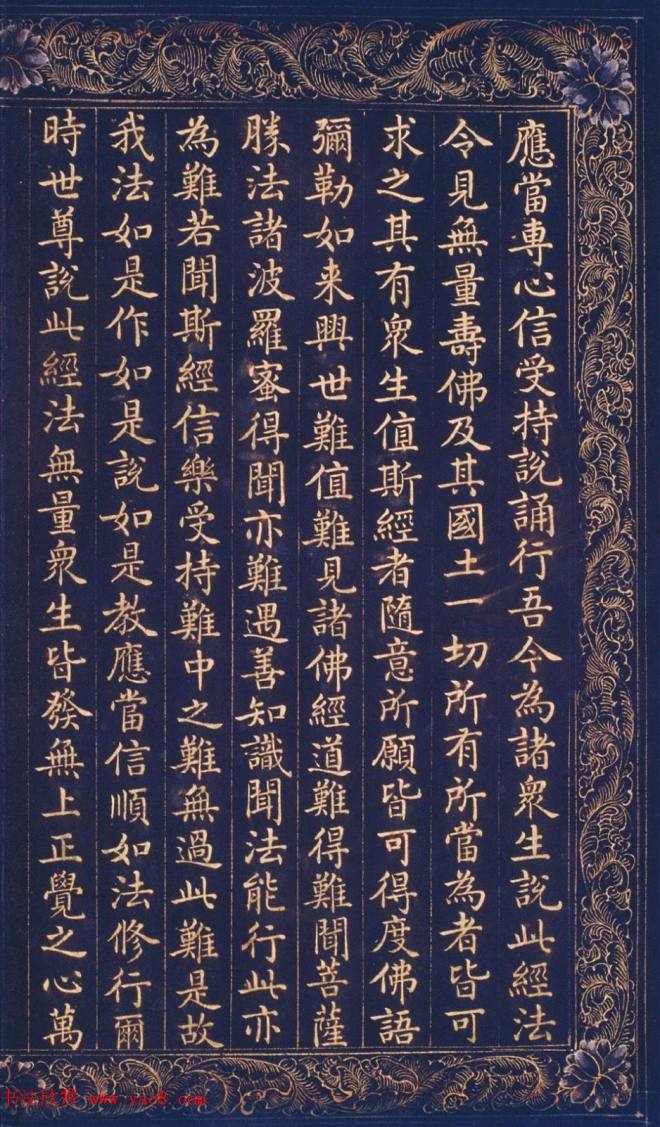 應當専心信受持說誦行吾今為諸衆生說此經法
令見無量壽佛及其國土一切所有所當為者皆可
求之其有衆生值斯經者隨意所願皆可得度佛語
彌勒如来興世難值難見諸佛經道難得難聞菩薩
勝法諸波羅蜜得聞亦難遇善知識聞法能行此亦
為難若聞斯經信樂受持難中之難無過此難是故
我法如是作如是說如是教應當信順如法修行爾
時世尊說此經法無量衆生皆發無上正覺之心萬
书法欣赏 www.yac8.com